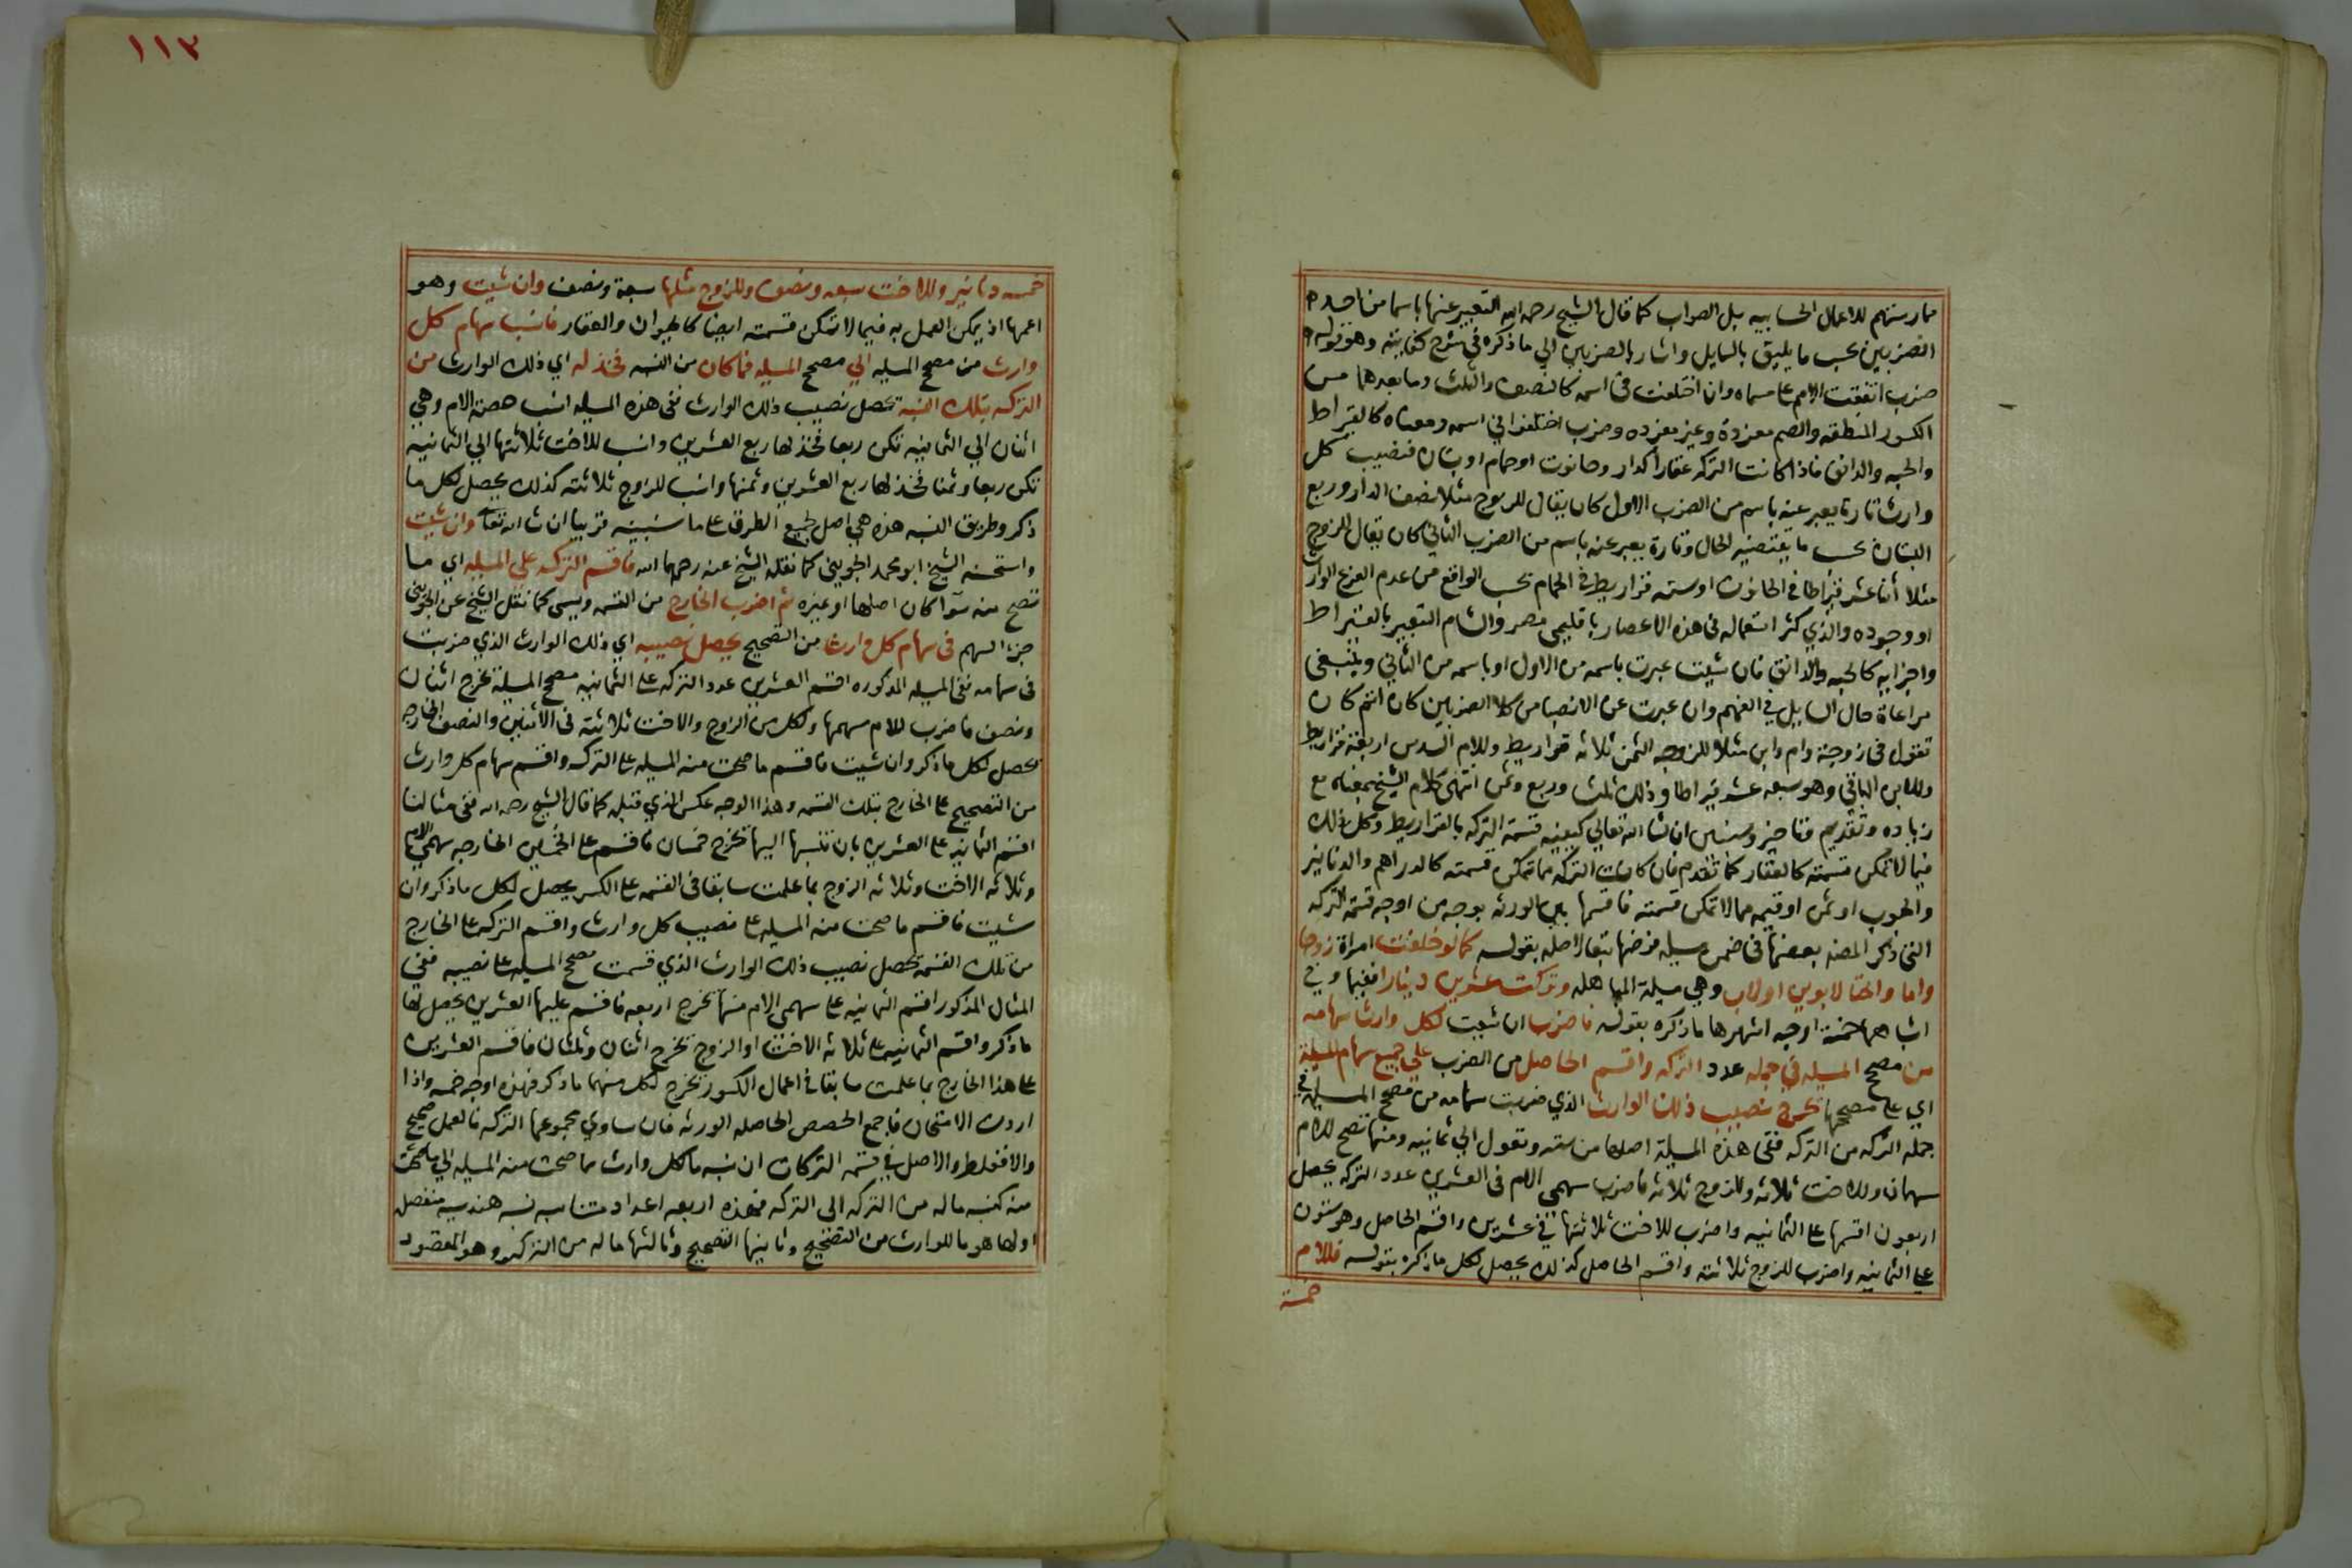 ممارستهم للاعمال الحسابيه بل الصواب كما قال الشيخ رحمه الله التعبير عنها باسما من احد
الضربين بحسب ما يليق بالسايل واشار بالضربين الي ما ذكره في شرح كفايته وهو قوله
ضرب اتفقت الامم على مسماه وان اختلفت في اسمه كالنصف والثلث وما بعدهما من
الكسور المنطقه والصم مفردة وغير مفرده وضرب اختلفوا في اسمه ومعناه كالقيراط
والحبه والدانق فاذا كانت التركه عقارا كدار وحانوت او حمام او بستان فنصيب كل
وارث تارة يعبر عنه باسم من الضرب الاول كان يقال للزوج مثلا نصف الدار وربع
البستان بحسب ما يقتضيه الحال وتارة يعبر عنه باسم من الضرب الثاني كان يقال للزوج
مثلا اثنا عشر قيراطا في الحانوت او سته قراريط في الحمام بحسب الواقع من عدم الفرع الوارث
او وجوده والذي كثر استعماله في هذه الاعصار باقليمي مصر والشام التعبير بالقيراط
واجزايه كالحبه والدانق فان شيت عبرت باسمه من الاول او باسمه من الثاني وينبغي
مراعاة حال السايل في الفهم وان عبرت عن الانصبا من كلا الضربين كان اتم كان
تقول في زوجة وام وابن مثلا للزوجه الثمن ثلاثه قراريط وللام السدس اربعة قراريط
وللابن الباقي وهو سبعه عشر قيراطا وذلك ثلث وربع وثمن انتهى كلام الشيخ بمعناه مع
زياده وتقديم وتاخير وسنبين ان شا الله تعالي كيفيه قسمة التركه بالقراريط وكل ذلك
فيما لا تمكن قسمته كالعقار كما تقدم فان كانت التركه مما تمكن قسمته كالدراهم والدنانير
والحبوب او ثمن او قيمه مما لا تمكن قسمته فاقسمها بين الورثه بوجه من اوجه قسمة التركه
التي ذكر المصنف بعضها في ضمن مسيله فرضها تبعا لاصله بقوله كما لو خلفت امراة زوجا
واما واختا لابوين او لاب وهي مسيلة المباهله وتركت عشرين دينارا ففيها وفي
اشباهها خمسة اوجه اشهرها ما ذكره بقوله فاضرب ان شيت لكل وارث سهامه
من مصحح المسيله في جمله عدد التركه واقسم الحاصل من الضرب علي جميع سهام المسيلة
اي على مصححها يخرج نصيب ذلك الوارث الذي ضربت سهامه من مصحح المسيله في
جمله التركه من التركه ففي هذه المسيلة اصلها من سته وتعول الي ثمانيه ومنها تصح للام
سهمان وللاخت ثلاثه وللزوج ثلاثه فاضرب سهمي الام في العشرين عدد التركه يحصل
اربعون اقسمها على الثمانيه واضرب للاخت ثلاثتها في عشرين واقسم الحاصل وهو ستون
على الثمانيه واضرب للزوج ثلاثته واقسم الحاصل كذلك يحصل لكل ما ذكره بقوله فللام
خمسة
١١٣
خمسه دنانير وللاخت سبعه ونصف وللزوج مثلها سبعة ونصف وان شيت وهو
اعمها اذ يمكن العمل به فيما لا تمكن قسمته ايضا كالحيوان والعقار فانسب سهام كل
وارث من مصحح المسيله الي مصحح المسيله فما كان من النسبه فخذ له اي ذلك الوارث من
التركه بتلك النسبه تحصل نصيب ذلك الوارث ففي هذه المسيله انسب حصة الام وهي
اثنان الي الثمانيه تكن ربعا فخذ لها ربع العشرين وانسب للاخت ثلاثتها الي الثمانيه
تكن ربعا وثمنا فخذ لها ربع العشرين وثمنها وانسب للزوج ثلاثته كذلك يحصل لكل ما
ذكر وطريق النسبه هذه هي اصل لجميع الطرق على ما سنبينه قريبا ان شا الله تعالى وان شيت
واستحسنه الشيخ ابو محمد الجويني كما نقله الشيخ عنه رحمهما الله فاقسم التركه علي المسيله اي ما
تصح منه سوا كان اصلها او غيره ثم اضرب الخارج من القسمه ويسمى كما نقل الشيخ عن الجويني
جزء السهم في سهام كل وارث من التصحيح يحصل نصيبه اي ذلك الوارث الذي ضربت
في سهامه ففي المسيله المذكوره اقسم العشرين عدد التركه على الثمانيه مصحح المسيلة يخرج اثنان
ونصف فاضرب للام سهمها ولكل من الزوج والاخت ثلاثته في الاثنين والنصف الخارجه
يحصل لكل ما ذكر وان شيت فاقسم ما صحت منه المسيله على التركه واقسم سهام كل وارث
من التصحيح على الخارج بتلك القسمه وهذا الوجه عكس الذي قبله كما قال الشيخ رحمه الله ففي مثالنا
اقسم الثمانيه على العشرين بان تنسبها اليها يخرج خمسان فاقسم على الخمسين الخارجه سهمي الام
وثلاثه الاخت وثلاثه الزوج بما علمت سابقا في القسمه على الكسر يحصل لكل ما ذكر وان
شيت فاقسم ما صحت منه المسيله على نصيب كل وارث واقسم التركه على الخارج
من تلك القسمه يحصل نصيب ذلك الوارث الذي قسمت مصحح المسيله على نصيبه ففي
المثال المذكور اقسم الثمانيه على سهمي الام منها يخرج اربعه فاقسم عليها العشرين يحصل لها
ما ذكر واقسم الثمانيه على ثلاثه الاخت او الزوج يخرج اثنان وثلثان فاقسم العشرين
على هذا الخارج بما علمت سابقا في اعمال الكسور يخرج لكل منهما ما ذكر فهذه اوجه خمسه واذا
اردت الامتحان فاجمع الحصص الحاصله للورثه فان ساوي مجموعها التركه فالعمل صحيح
والا فغلط والاصل في قسمه التركات ان نسبه ما لكل وارث مما صحت منه المسيله الي ما صحت
منه كنسبه ما له من التركه الي التركه فهذه اربعه اعداد متناسبه نسبه هندسيه منفصله
اولها هو ما للوارث من التصحيح وثانيها التصحيح وثالثها ما له من التركه وهو المقصود